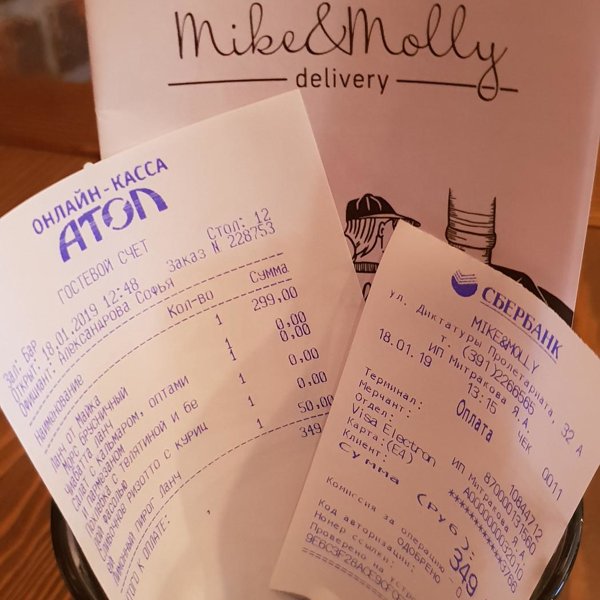 Mike&Molly
delivery
ОНЛАЙН-КАССА
АТОЛ
ГОСТЕВОЙ СЧЕТ
Стол: 12
Зал: Бар
Открыт: 18.01.2019 12:48 Заказ N 228753
Официант: Александрова Софья
Наименование Кол-во Сумма
Ланч от Майка 1 299,00
Морс брусничный 1 0,00
Чиабатта ланч 1 0,00
Салат с кальмаром, оптами 1 0,00
и пармезаном
с телятиной и бе 1 0,00
фасолью
ризотто с куриц
пирог ланч 1 50,00
ИТОГО К ОПЛАТЕ: 349
СБЕРБАНК
MIKE&MOLLY
ул. Диктатуры Пролетариата, 32 А
т. (391)2266565
ИП Митракова Я.А.
18.01.19 13:15 ЧЕК 0011
Оплата
Терминал: 10844712
Мерчант:
Отдел: ИП Митракова Я.А.
Visa Electron A0000000032010
Карта:(E4) 3766
Клиент:
Сумма (Руб): 349
Комиссия за операцию 0
ОДОБРЕНО
Код авторизации:
Номер ссылки:
Проверено на